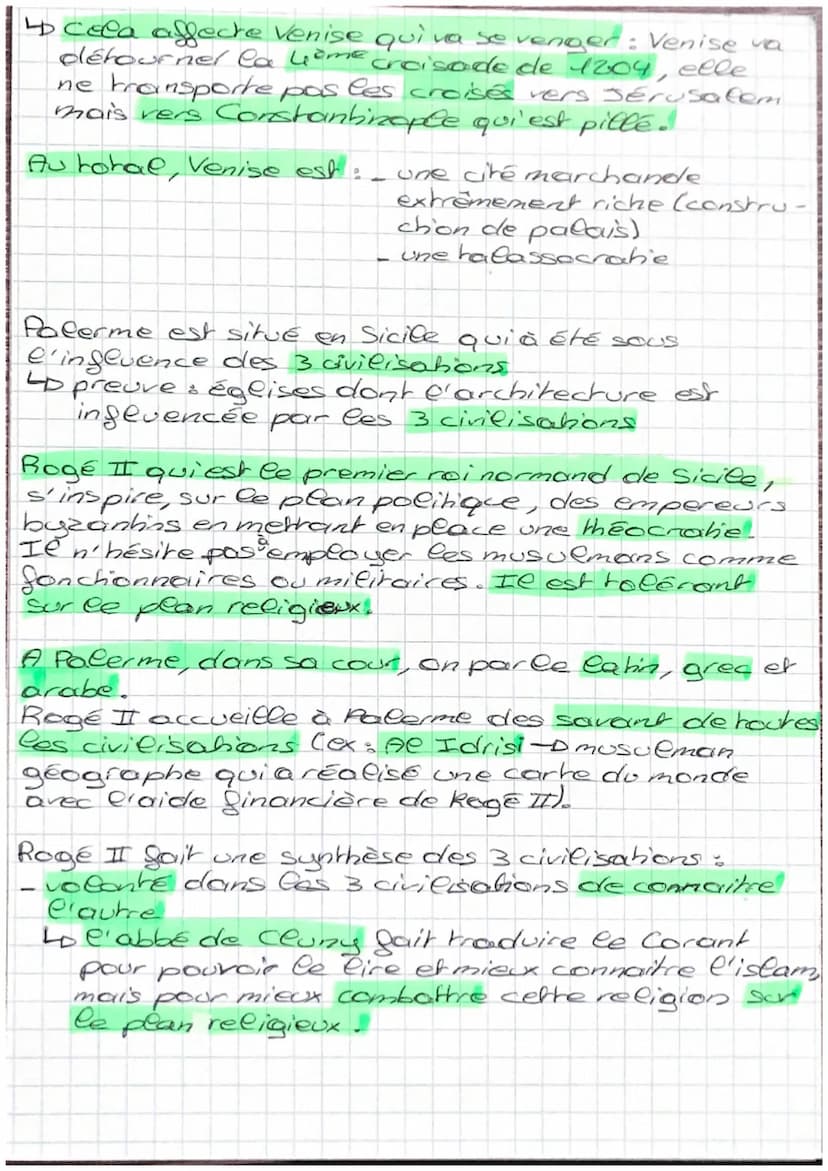 ↳ Cela affecte Venise qui va se venger : Venise va
détourner la 4ème croisade de 1204, elle
ne transporte pas les croisés vers Jérusalem
mais vers Constantinople qu'est pillé.
Au total, Venise est : - une cité marchande
extrêmement riche (constru-
ction de palais)
- une talassocratie
Palerme est situé en Sicile qui à été sous
l'influence des 3 civilisations
↳ preuve : églises dont l'architecture est
influencée par les 3 civilisations
Rogé II qui est le premier roi normand de Sicile,
s'inspire, sur le plan politique, des empereurs
byzantins en mettant en place une théocratie.
Il n'hésite pas à employer les musulmans comme
fonctionnaires ou militaires. Il est tolérant
sur le plan religieux.
A Palerme, dans sa cour, on parle latin, grec et
arabe.
Rogé II accueille à Palerme des savant de toutes
les civilisations (ex : Al Idrisi → musulman
géographe qui a réalisé une carte du monde
avec l'aide financière de Rogé II).
Rogé II fait une synthèse des 3 civilisations :
- volonté dans les 3 civilisations de connaitre
l'autre
↳ l'abbé de Cluny fait traduire le Corant
pour pouvoir le lire et mieux connaitre l'islam,
mais pour mieux combattre cette religion sur
le plan religieux.